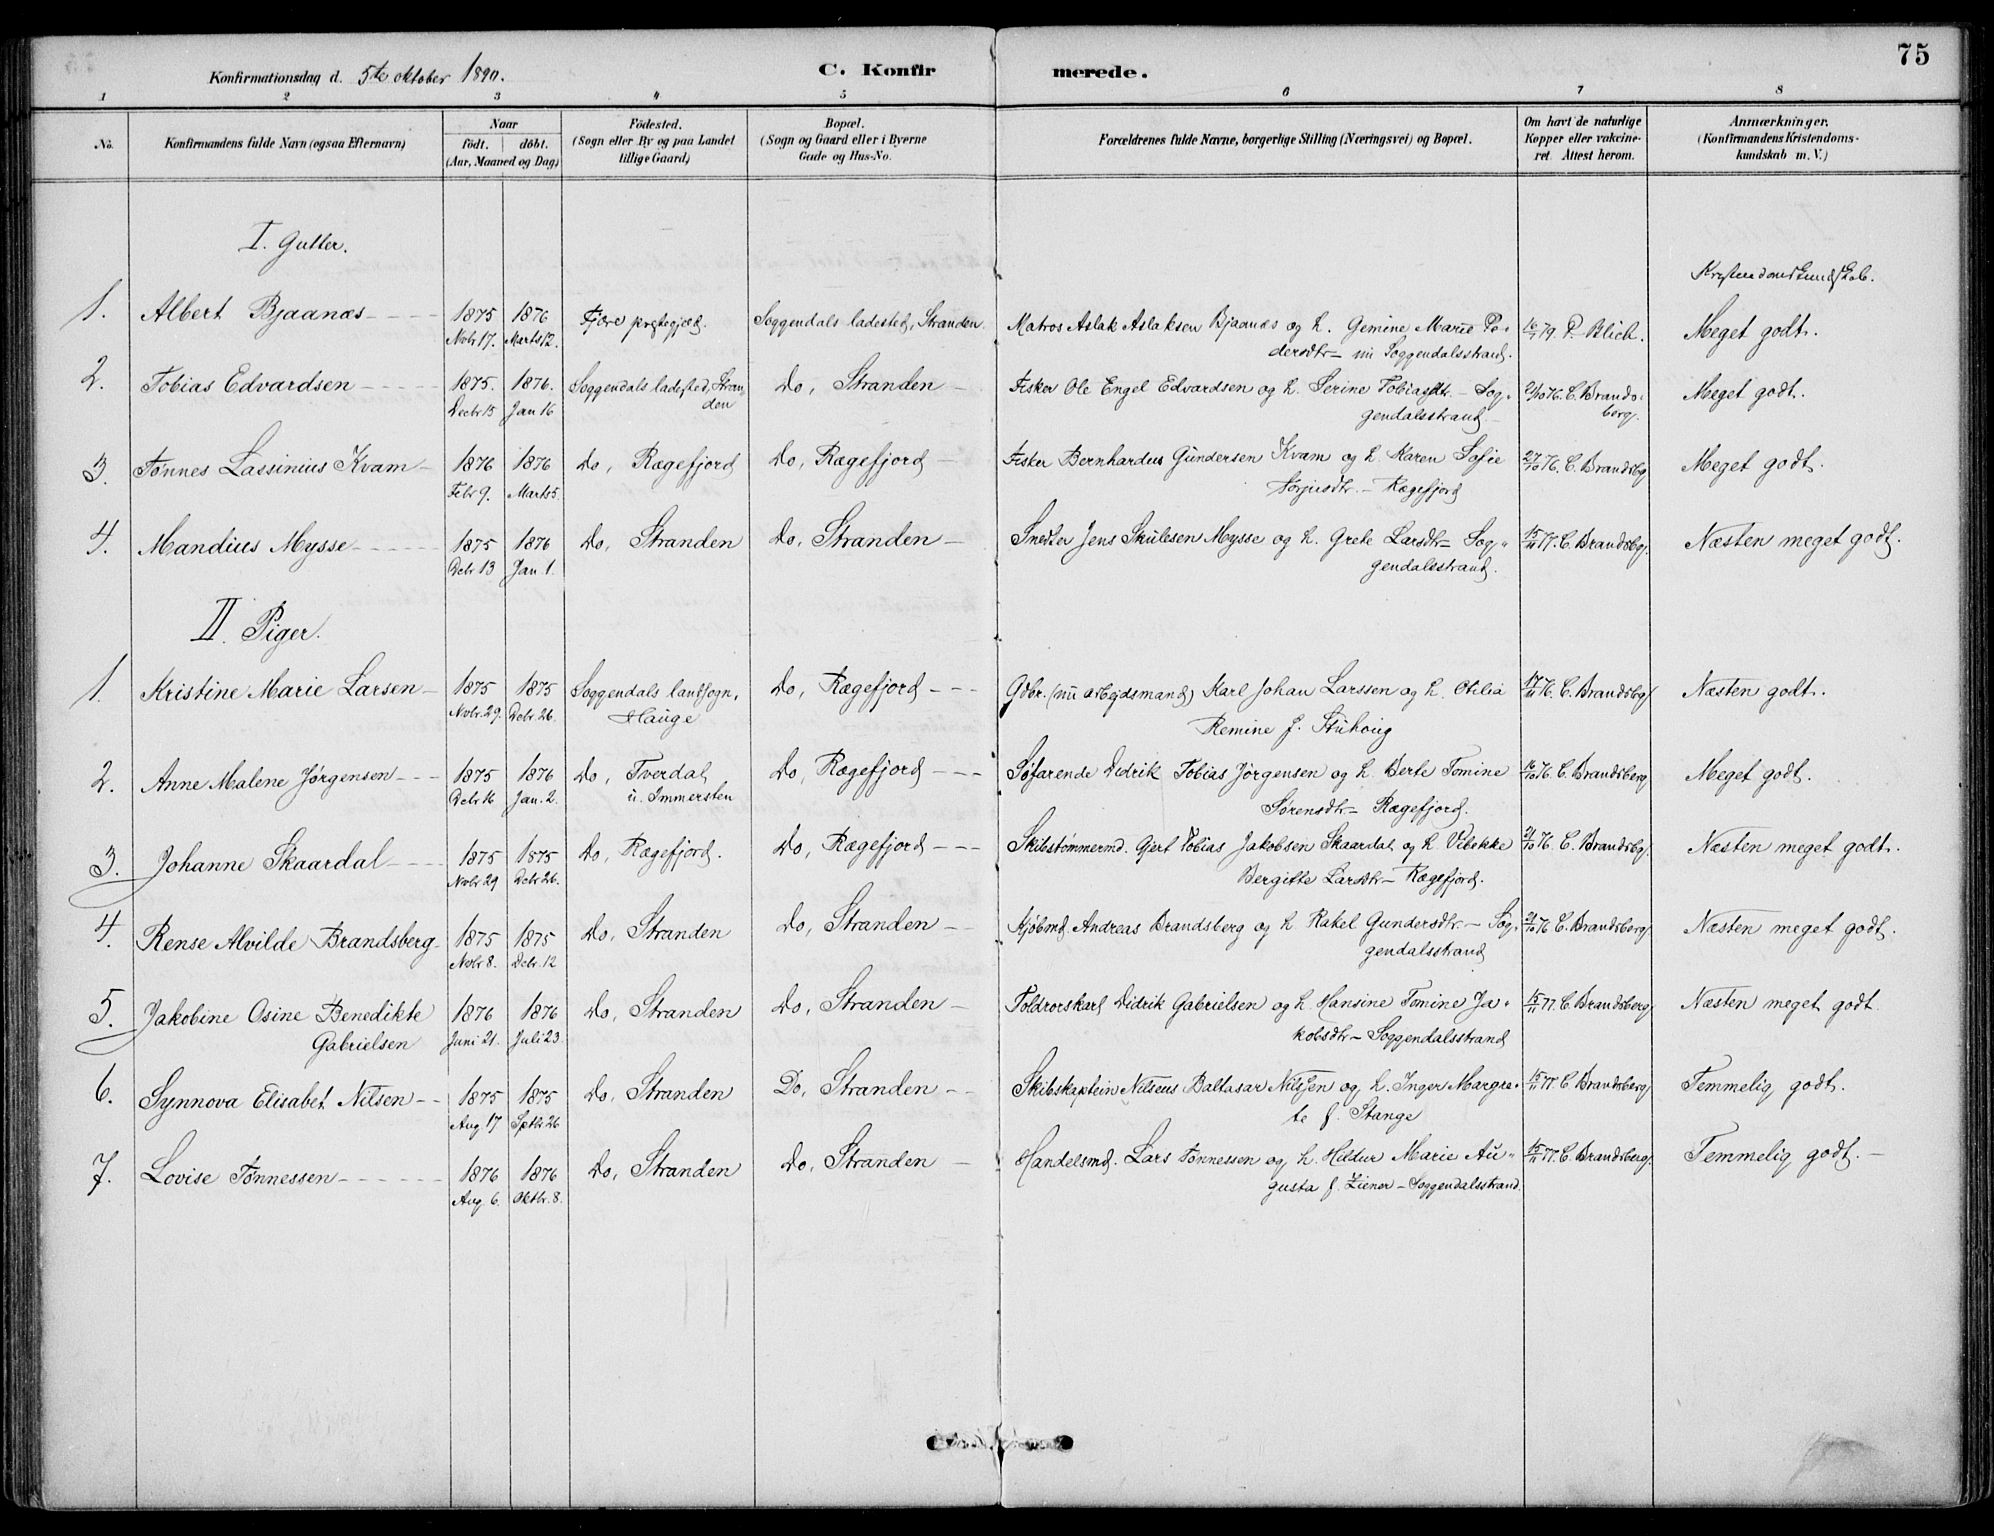 75
Konfirmationsdag d. 5te oktober 1890. C. Konfirmerede.
1 2 3 4 5 6 7 8
No. Konfirmandens fulde Navn (ogsaa Efternavn) Naar födt. döbt. (Aar, Maaned og Dag) Födested. (Sogn eller By og paa Landet tillige Gaard) Bopæl. (Sogn og Gaard eller i Byerne Gade og Hus-No. Forældrenes fulde Navne, borgerlige Stilling (Næringsvei) og Bopæl. Om havt de naturlige Kopper eller vakcineret. Attest herom. Anmærkninger. (Konfirmandens Kristendomskundskab m. V.)
I. Gutter.
Kristendomskundskab.
1. Albert Bjaanæs 1875 1876 Fjære prstegjæld. Soggendals ladested, Stranden. Matros Aslak Aslaksen Bjaanæs og h. Gemine Marie Pe- 79. P. Blich. Meget godt.
Novbr 17. Marts 12. dersdtr – nu Soggendalsstrand.
2. Tobias Edvardsen 1875. 1876. Soggendals ladested, Stran- Do, Stranden Fisker Ole Engel Edvardsen og h. Serine Tobiasdtr. – Sog- 21/10 76. C. Brands- Meget godt.
Decbr 15 Jan 16 den gendalsstrand – berg.
3. Tønnes Lassinius Kvam 1876 1876 Do, Rægefjord Do, Rægefjord Fisker Bernhardus Gundersen Kvam og h. Karen Sofie 27/10 76. C. Brandsbg Meget godt.
Febr 9. Marts 5. Torjusdtr. – Rægefjord
4. Mandius Mysse 1875 1876 Do, Stranden Do, Stranden Snedker Jens Skulesen Mysse og h. Grete Larsdtr – Sog- 15/11 77. C. Brandsbg. Næsten meget godt.
Debr 13 Jan. 1. gendalsstrand.
II. Piger.
1. Kristine Marie Larsen 1875 1875 Soggendals landsogn, Do, Rægefjord Gdbr. (nu arbejdsmand) Karl Johan Larssen og h. Otilia 17/11 76. C. Brandsbg Næsten godt.
Novbr. 29. Debr. 26. Hauge Remine f. Stuhoug
2. Anne Malene Jørgensen 1875 1876 Do, Tverdal Do, Rægefjord Søfarende Didrik Tobias Jørgensen og h. Berte Tomine 16/10 76. C. Brandsberg Meget godt.
Debr 16 Jan. 2. u. Immersten Sørensdtr – Rægefjord.
3. Johanne Skaardal 1875 1875 Do, Rægefjord. Do, Rægefjord Skibstømmermd. Gjert Tobias Jakobsen Skaardal og h. Vibekke 21/10 76. C. Brandsbg. Næsten meget godt.
Novbr 29 Debr 26. Bergitte Larsdtr – Rægefjord.
4. Rense Alvilde Brandsberg 1875 1875 Do, Stranden Do, Stranden Kjøbmd. Andreas Brandsberg og h. Rakel Gundersdtr. – Sog- 21/10 76 C. Brandsberg Næsten meget godt.
Novbr 8. Debr. 12 gendalsstrand
5. Jakobine Osine Benedikte 1876 1876 Do, Stranden Do, Stranden Toldrorskarl Didrik Gabrielsen og h. Hansine Tomine Ja- 15/11 77. C. Brandsberg Næsten meget godt.
Gabrielsen Juni 21. Juli 23. kobsdtr – Soggendalsstrand
6. Synnova Elisabet Nilsen 1875 1875 Do, Stranden Do, Stranden Skibskaptein Nilseus Baltasar Nilssen og h. Inger Margre- 15/11 77 C. Brandsberg Temmelig godt.
Aug 17 Septbr 26 te f. Stange
7. Lovise Tønnessen 1876 1876 Do, Stranden Do, Stranden Handelsmd. Lars Tønnessen og h. Hildur Marie Au- 15/11 77. C. Brandsberg. Temmelig godt. –
Aug 6. Oktbr. 8. gusta f. Ziener – Soggendalsstrand.